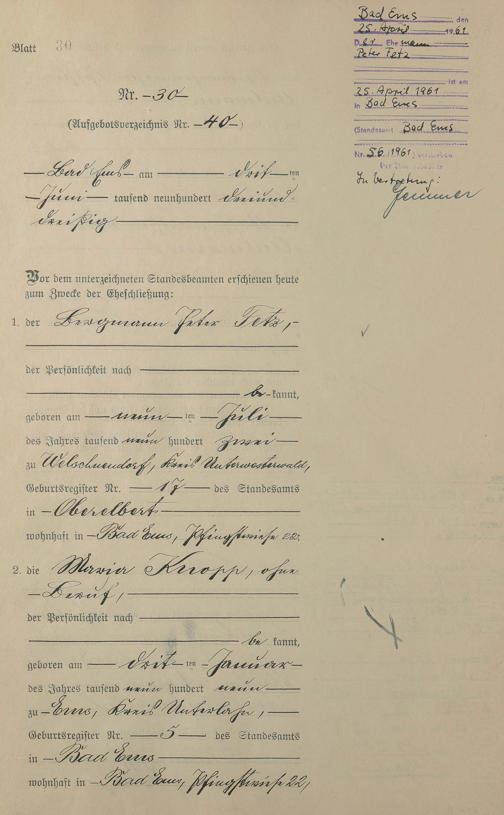 Blatt 30
Nr. 30
(Aufgebotsverzeichnis Nr. 40)
Bad Ems am drit ten
Juni tausend neunhundert dreiund-
dreißig
Vor dem unterzeichneten Standesbeamten erschienen heute
zum Zwecke der Eheschließung:
1. der Bergmann Peter Fetz,
der Persönlichkeit nach
be kannt,
geboren am neun ten Juli
des Jahres tausend neun hundert zwei
zu Welschneudorf, Kreis Unterwesterwald,
Geburtsregister Nr. 17 des Standesamts
in Oberelbert
wohnhaft in Bad Ems, Pfingstwiese 22,
2. die Maria Knopp, ohne
Beruf,
der Persönlichkeit nach
be kannt,
geboren am drit ten Januar
des Jahres tausend neun hundert neun
zu Ems, Kreis Unterlahn,
Geburtsregister Nr. 5 des Standesamts
in Bad Ems
wohnhaft in Bad Ems, Pfingstwiese 22,
Bad Ems den
25. April 1961
Der Ehemann
Peter Fetz
ist am
25. April 1961
in Bad Ems
(Standesamt Bad Ems
Nr. 56/1961) verstorben
Der Standesbeamte
In Vertretung: